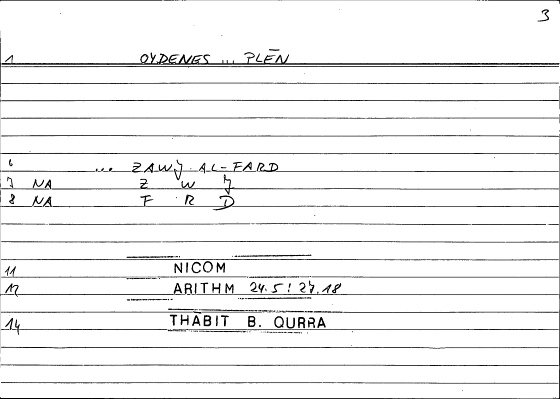 3
1 OYDENES ... PLĒN
6 ... ZAWJ AL-FARD
7 NA Z W J
8 NA F R D
11 NICOM
12 ARITHM 24.5 : 27.18
14 THABIT B. QURRA